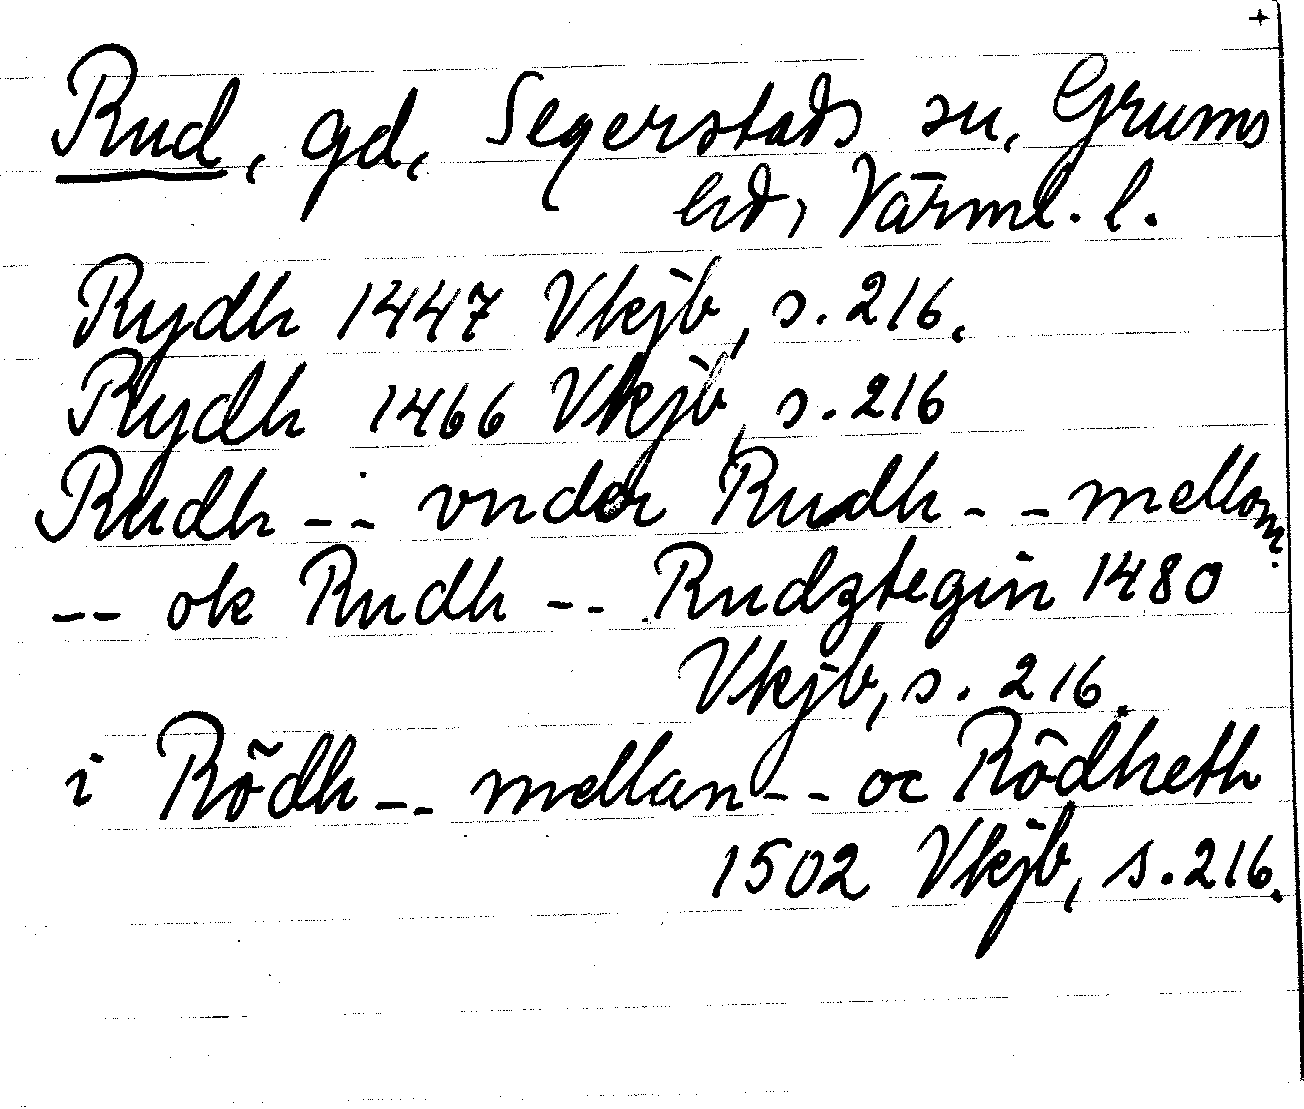 +
Rud, gd, Segerstads sn, Grums
hd, Värml. l.
Rydh 1447 Vkjb, s. 216.
Rydh 1466 Vkjb, s. 216
Rudh -- vnder Rudh -- mellom
-- ok Rudh -- Rudzstegin 1480
Vkjb, s. 216.
i Rödh -- mellan -- oc Rödheth
1502 Vkjb, s. 216.